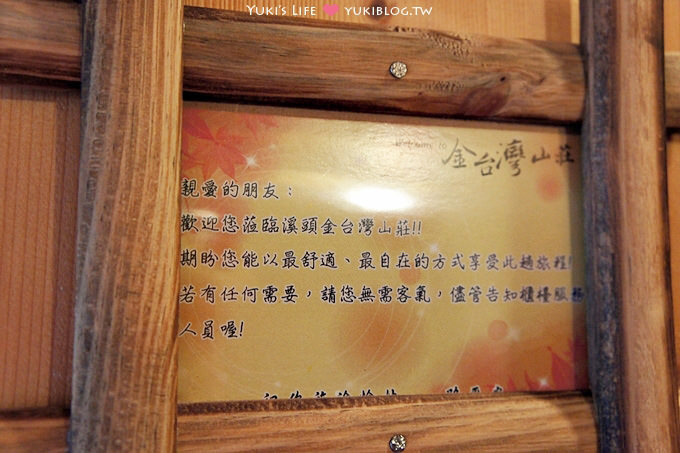 YUKI'S LIFE ♥ YUKIBLOG.TW
Welcome to
金台灣山莊
親愛的朋友：
歡迎您蒞臨溪頭金台灣山莊!!
期盼您能以最舒適、最自在的方式享受此趟旅程!
若有任何需要，請您無需客氣，儘管告知櫃檯服務
人員喔!